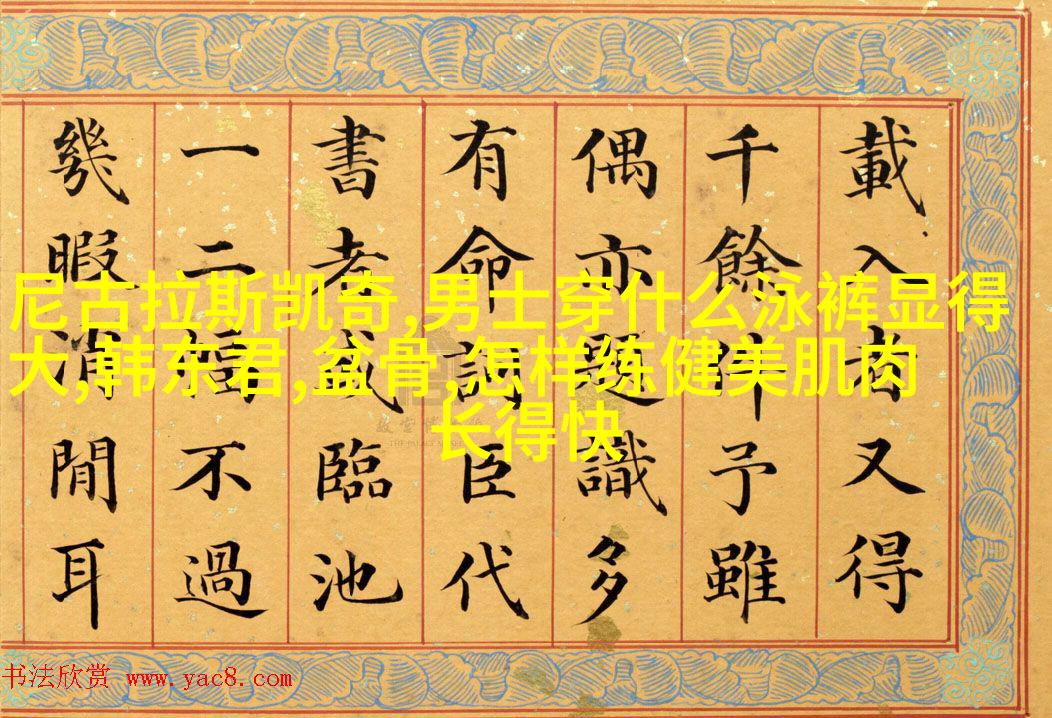 載入者又得
千餘件予雖
偶亦題識多
有命詞臣代
書者或臨池
一二幅不過
幾暇消閒耳
尼古拉斯凯奇,男士穿什么泳裤显得
大,韩东君,盆骨,怎样练健美肌肉
长得快
THE PALACE MUSEUM
书法欣赏 www.yac8.com